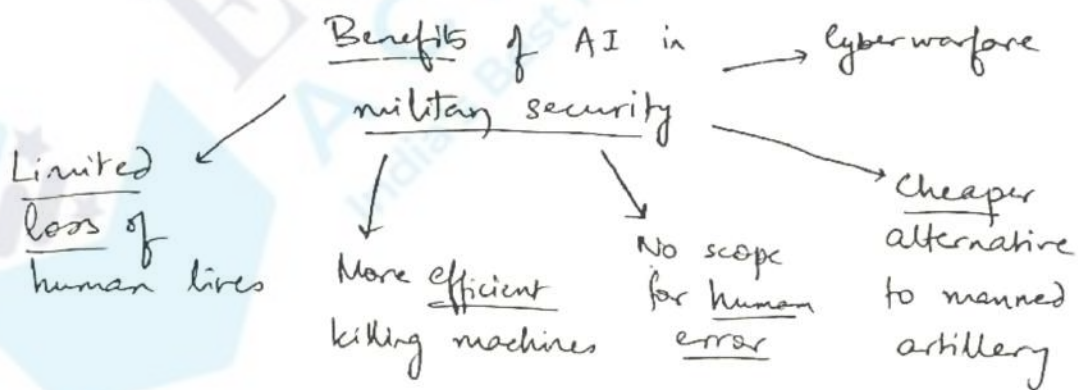 Benefits of AI in
military security
Cyberwarfare
Limited
loss of
human lives
More efficient
killing machines
No scope
for human
error
Cheaper
alternative
to manned
artillery
India's Best